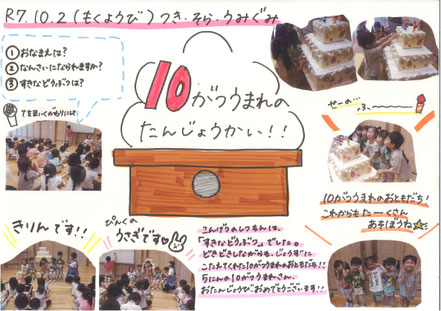 R7.10.2(もくようび)つき・そら・うみぐみ
①おなまえは？
②なんさいになられますか？
③すきなどうぶつは？
てをまいくがわりに
10がつうまれの
たんじょうかい！！
せーの…
ふぅ〜
きりんです！！
ぴんくの
うさぎです
こんげつのしつもんは、
「すきなどうぶつ」でした。
どきどきしながらも、じょうずに
こたえてくれた10がつうまれのおともだち！！
5にんの10がつうまれさん、
おたんじょうびおめでとうございます！！
10がつうまれのおともだち！
これからもたーくさん
あそぼうね